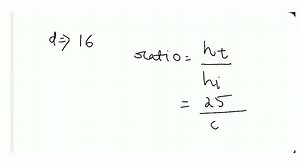 d⇒ 16
ratio = ht/hi
= 25/c